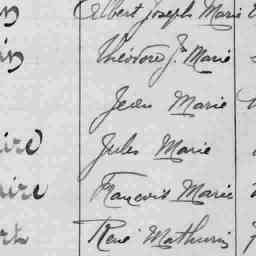 Albert Joseph Marie
Théodore J. Marie
Jean Marie
Jules Marie
François Marie
René Mathurin